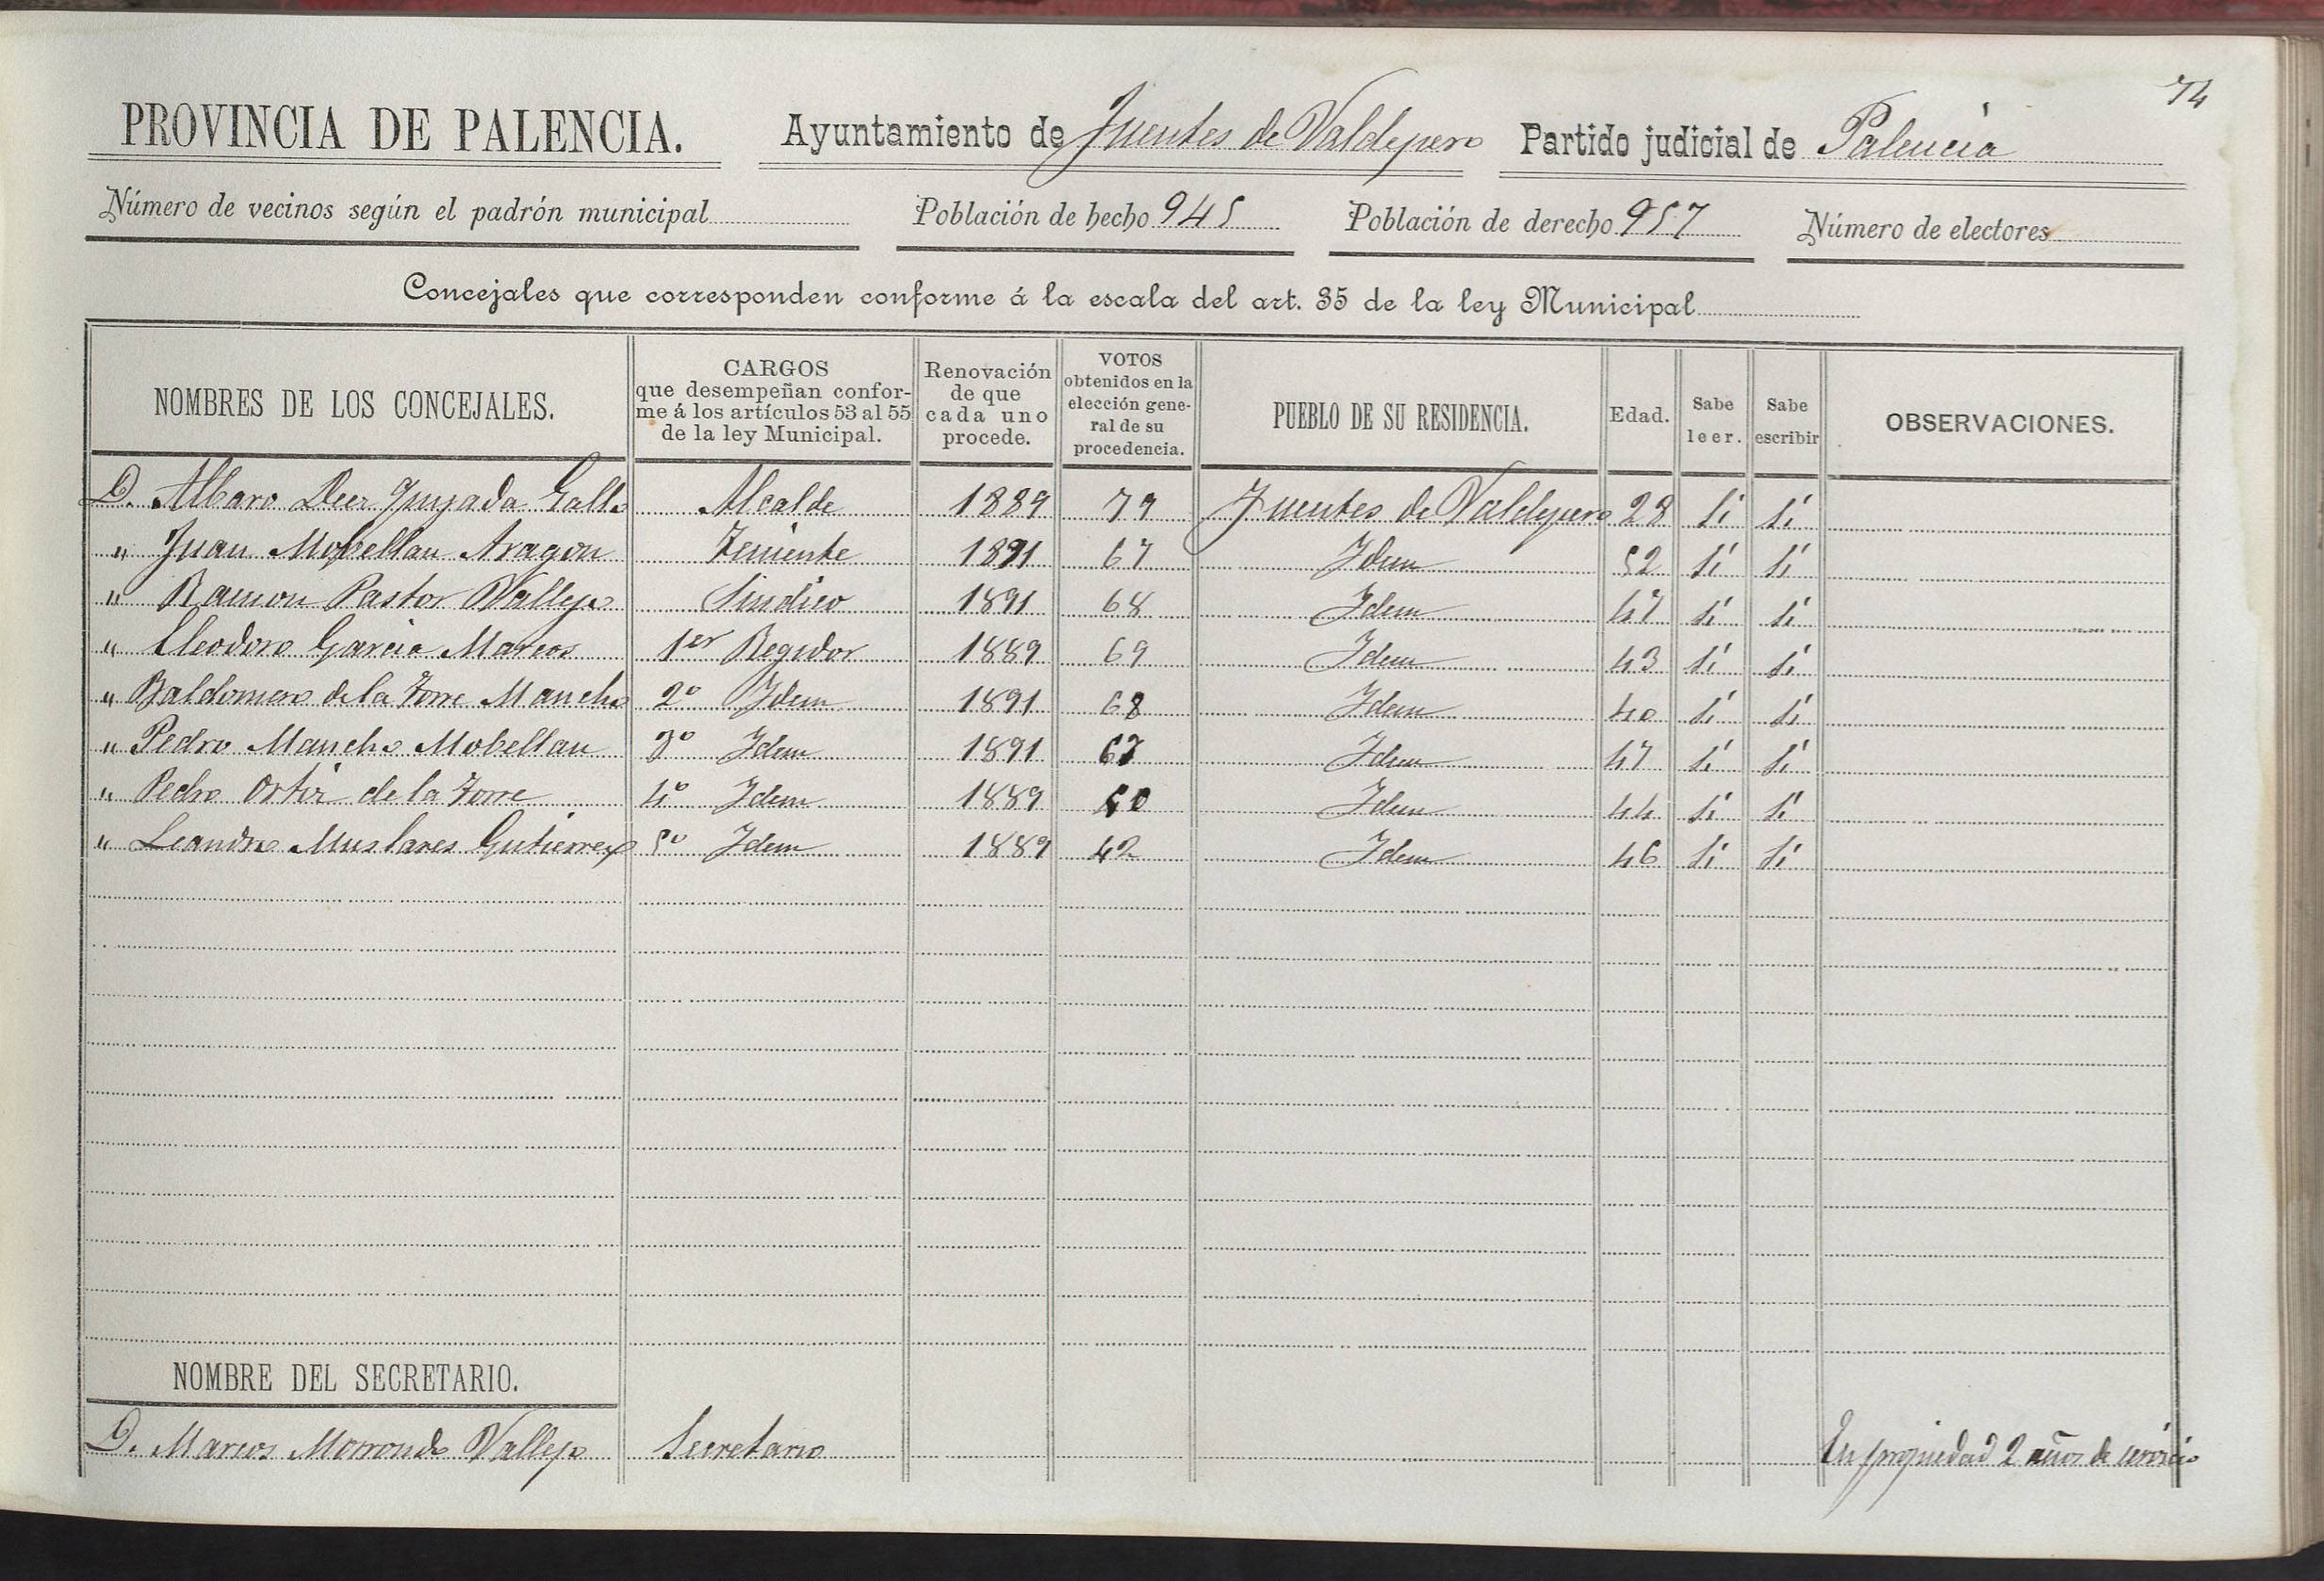 74
PROVINCIA DE PALENCIA. Ayuntamiento de Fuentes de Valdepero Partido judicial de Palencia
Número de vecinos según el padrón municipal Población de hecho 945 Población de derecho 957 Número de electores
Concejales que corresponden conforme á la escala del art. 35 de la ley Municipal
NOMBRES DE LOS CONCEJALES.
CARGOS
que desempeñan confor-
me á los artículos 53 al 55
de la ley Municipal.
Renovación
de que
cada uno
procede.
VOTOS
obtenidos en la
elección gene-
ral de su
procedencia.
PUEBLO DE SU RESIDENCIA.
Edad.
Sabe
leer.
Sabe
escribir
OBSERVACIONES.
D. Albaro Diez Quijada Gallo Alcalde 1889 79 Fuentes de Valdepero 28 Sí Sí
" Juan Mobellan Aragon Teniente 1891 67 Idem 52 Sí Sí
" Ramon Pastor Vallejo Sindico 1891 68 Idem 47 Sí Sí
" Cleodoro Garcia Marcos 1er Regidor 1889 69 Idem 43 Sí Sí
" Baldomero de la Torre Mancho 2º Idem 1891 68 Idem 40 Sí Sí
" Pedro Mancho Mobellan 3º Idem 1891 67 Idem 47 Sí Sí
" Pedro Ortiz de la Torre 4º Idem 1889 60 Idem 44 Sí Sí
" Leandro Muslares Gutierrez 5º Idem 1889 42 Idem 46 Sí Sí
NOMBRE DEL SECRETARIO.
D. Marcos Morrondo Vallejo Secretario En propiedad 2 años de servicio